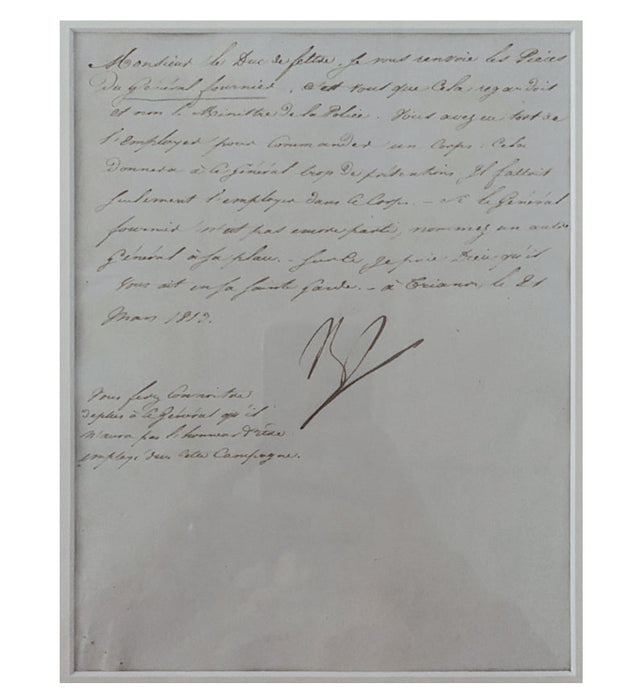 Monsieur le Duc de feltre. Je vous renvoie les Pièces
du Général fournier, c'est vous que Cela regardoit
et non le Ministre de la Police. Vous avez eu tort de
l'Employer pour Commander un Corps: Cela
donnera à ce Général trop de prétentions. Il falloit
seulement l'employer dans le Corps. – Si le Général
fournier n'est pas encore parti, nommez un autre
Général à sa place. – Sur Ce, Je prie Dieu qu'il
Vous ait en sa Sainte Garde. – à Trianon, le 21
Mars 1813.
Vous ferez Connoitre
depuis à ce Général qu'il
n'aura pas l'honneur d'être
employé dans cette Campagne.